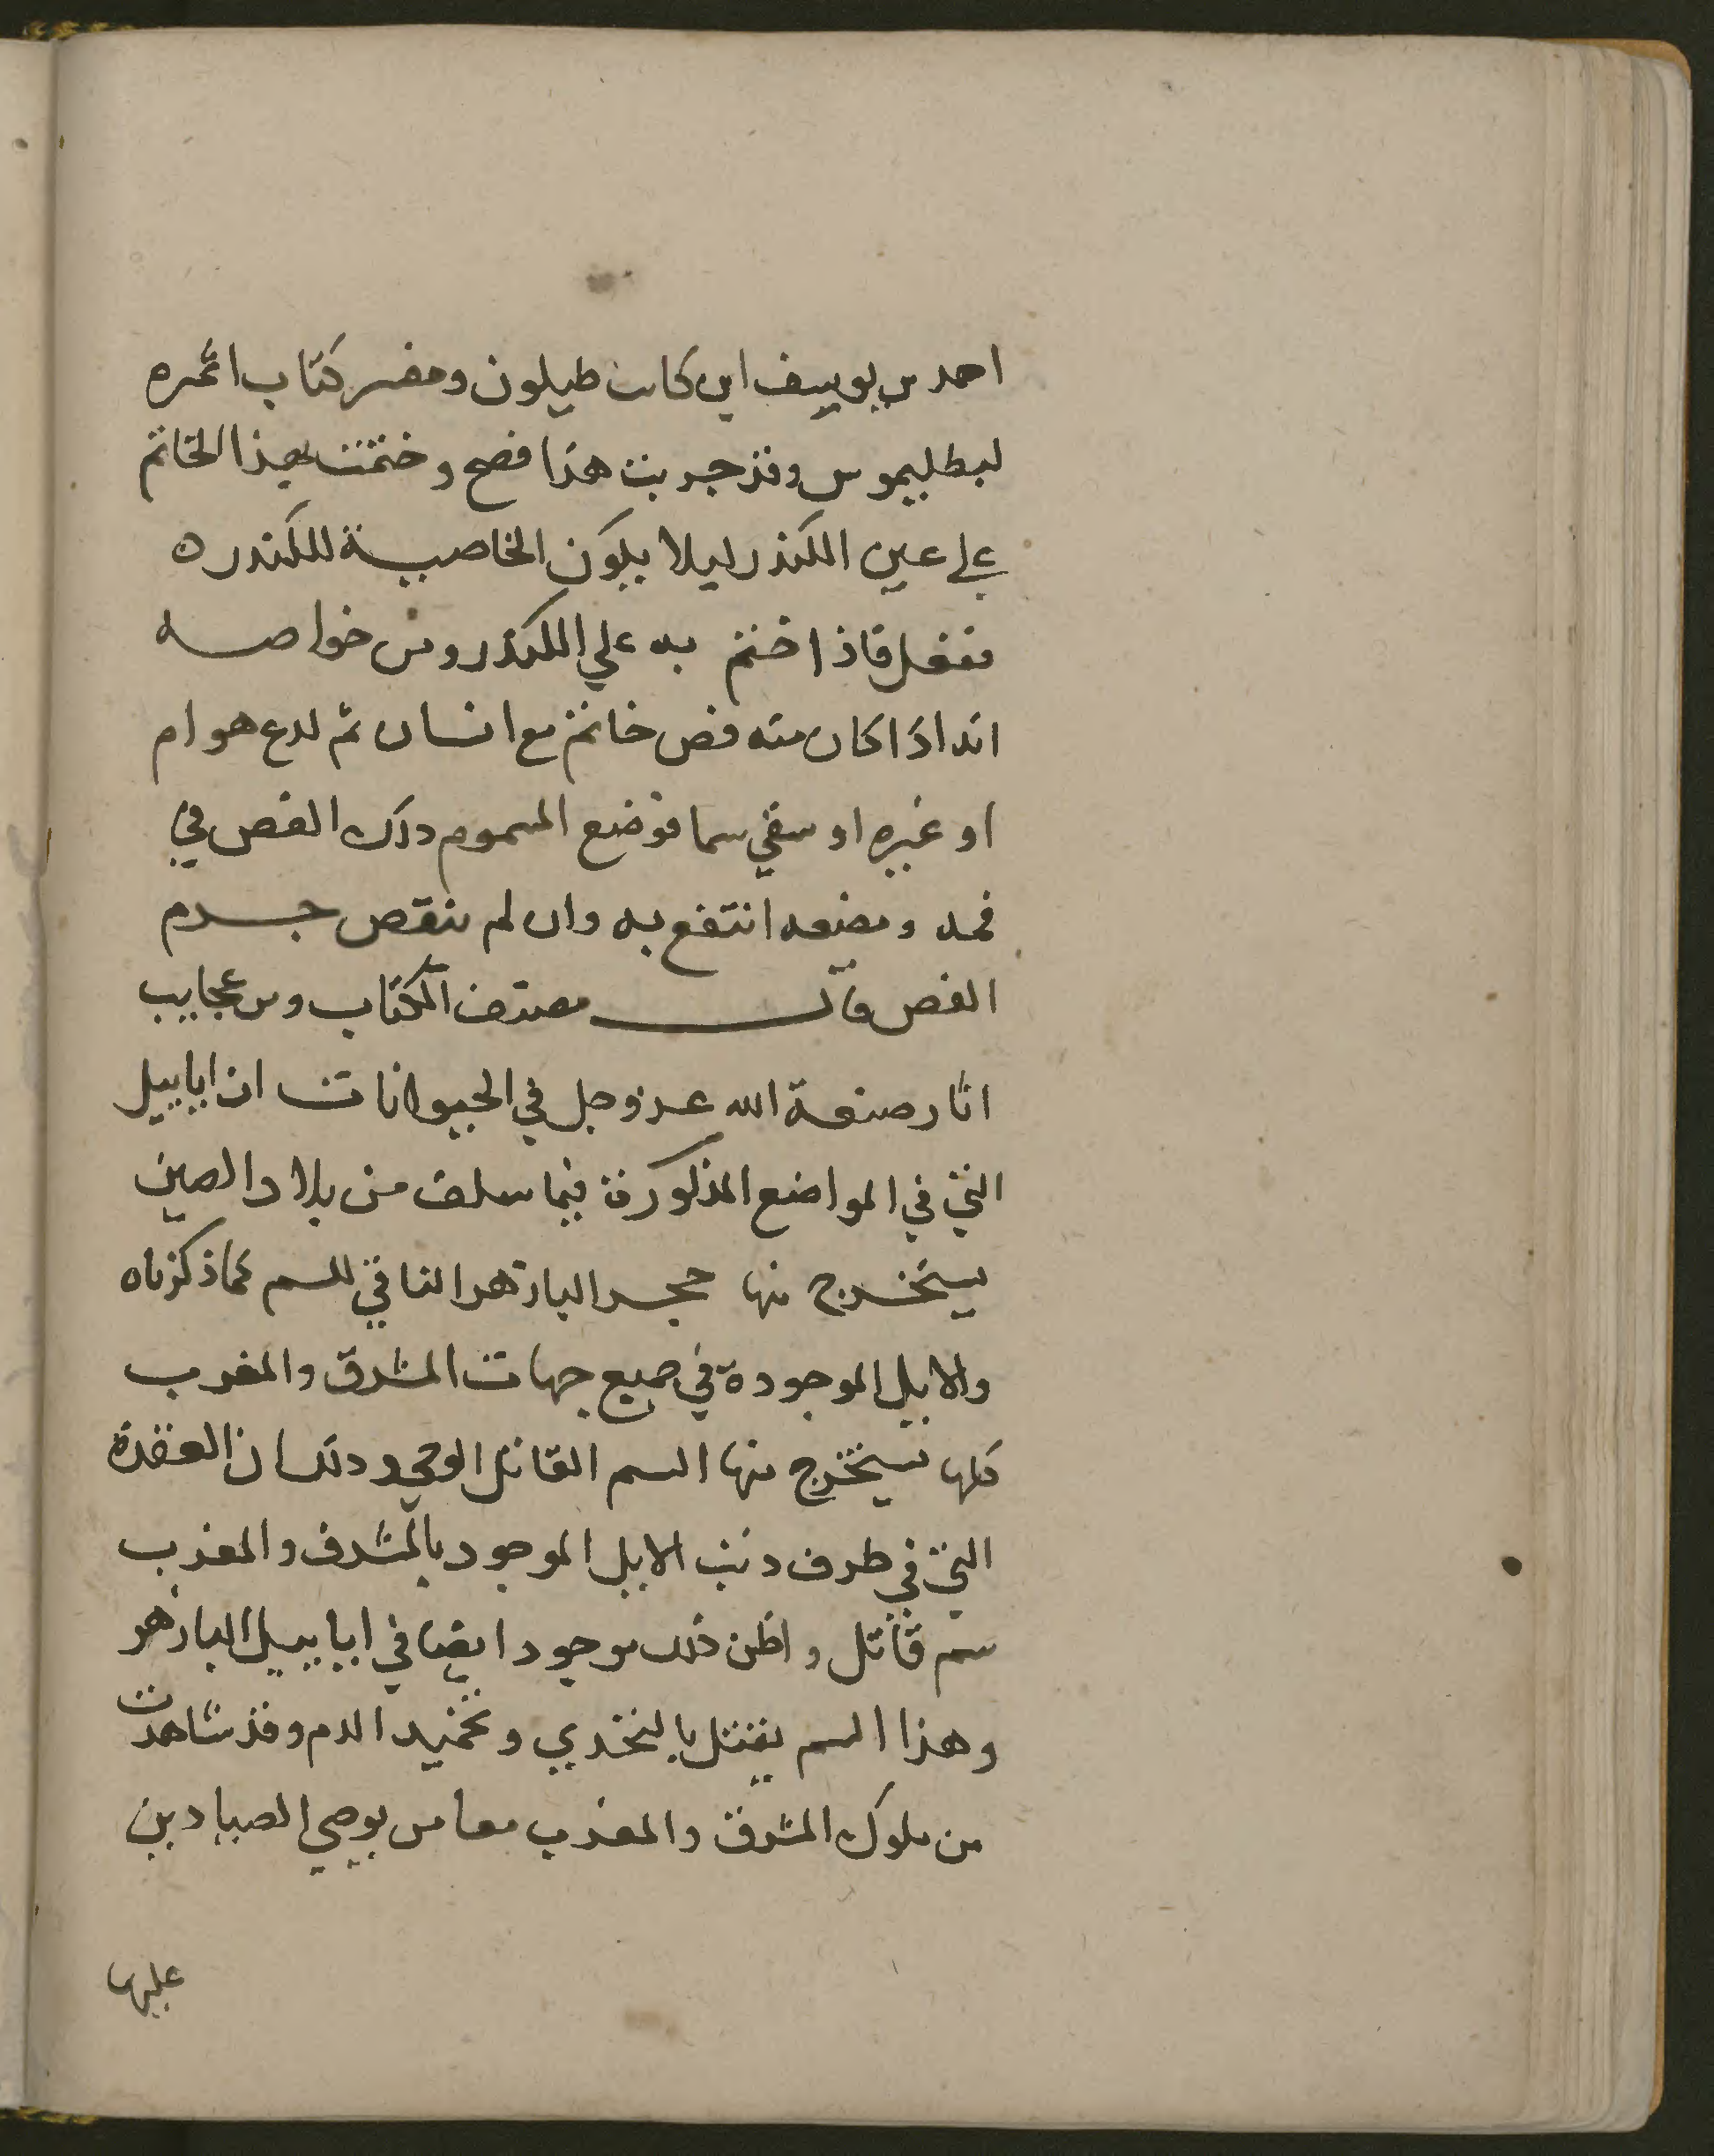 احمد بن يوسف ابن كاتب طيلون ومفسر كتاب اثمره
لبطليموس وقد جربت هذا فصح وختمت بهذا الخاتم
علي عين الكندر ليلا يكون الخاصية للكندره
تفعل فاذا ختم به علي الكندر ومن خواصه
انه اذا كان منه فص خاتم مع انسان ثم لدع هوام
او غيره او سقي سما فوضع المسموم ذلك الفص في
فمه ومضعه انتفع به وان لم ينقص جسدم
الفص قال مصنف الكتاب ومن عجايب
اثار صنعة الله عز وجل في الحيوانات ان ايابيل
التي في المواضع المذكورة فيما سلف من بلاد الصين
يستخرج منها حجر البازهر النافي للسم كما ذكرناه
والايل الموجودة في جميع جهات المشرق والمغرب
كلها يستخرج منها السم القاتل الوحي وذلك ان العقدة
التي في طرف دنب الايل الموجود بالمشرق والمغرب
سم قاتل واظن ذلك موجود ايضا في ايابيل البازهر
وهذا السم يقتل بالتخدير وتجميد الدم وقد شاهدت
من ملوك المشرق والمغرب معا من يوصي الصيادين
عليها